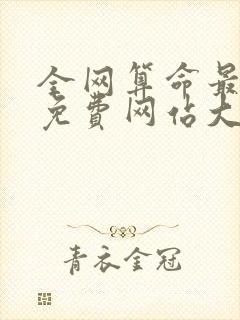 全网算命最
免费网站大
青衣金冠